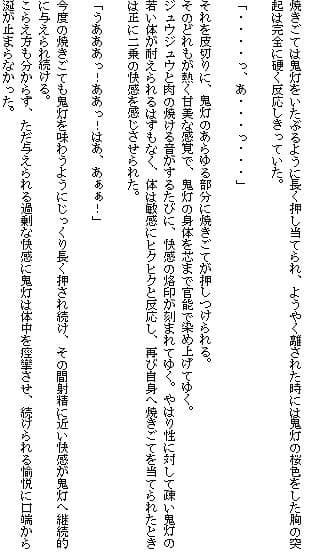 焼きごては鬼灯をいたぶるように長く押し当てられ、ようやく離された時には鬼灯の桜色をした胸の突
起は完全に硬く反応しきっていた。
「・・・・っ、あ・・・っ・・・」
それを皮切りに、鬼灯のあらゆる部分に焼きごてが押しつけられる。
そのどれもが熱く甘美な感覚で、鬼灯の身体を芯まで官能で染め上げてゆく。
ジュウジュウと肉の焼ける音がするたびに、快感の烙印が刻まれてゆく。やはり性に対して疎い鬼灯の
若い体が耐えられるはずもなく、体は敏感にヒクヒクと反応し、再び自身へ焼きごてを当てられたとき
は正に二乗の快感を感じさせられた。
「うあああっ!ああっ!はあ、あぁぁ!」
今度の焼きごても鬼灯を味わうようにじっくり長く押され続け、その間射精に近い快感が鬼灯へ継続的
に与えられ続ける。
こらえ方も分からず、ただ与えられる過剰な快感に鬼灯は体中を痙攣させ、続けられる愉悦に口端から
涎が止まらなかった。